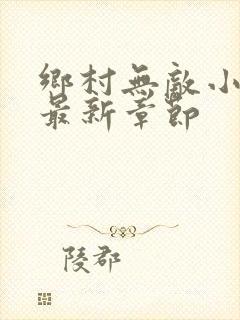 鄉村無敵小
最新章節
陵郡